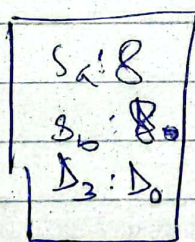 Sₐ: 8
S_b: 8₀
D₃: D₀